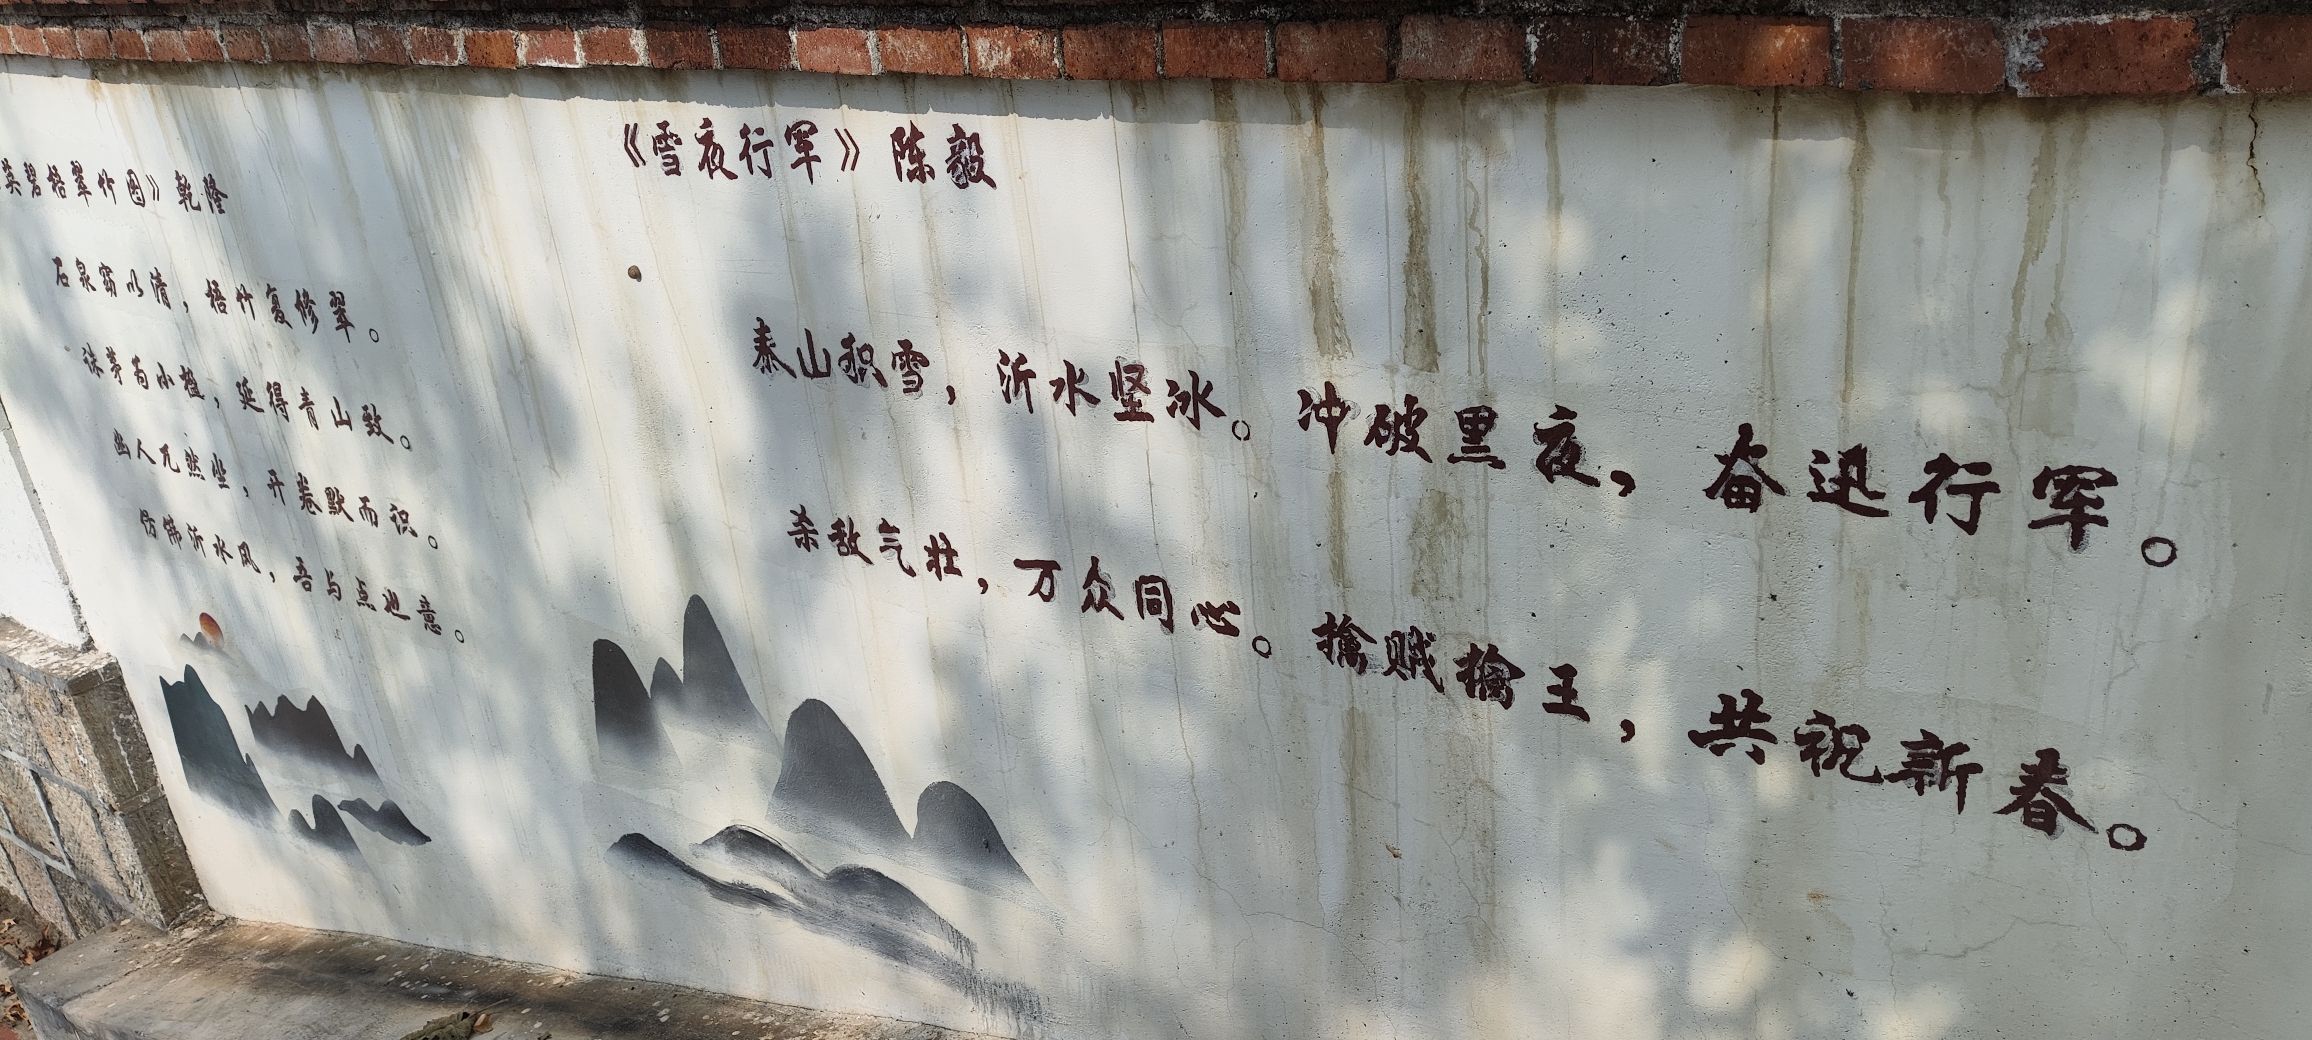 英碧梧翠竹图》乾隆
石泉窈以清，梧竹复修翠。
诛茅茍小楹，延得青山致。
幽人兀然坐，开卷默而识。
仿佛沂水风，吾与点也意。
《雪夜行军》陈毅
泰山积雪，沂水坚冰。冲破黑夜，奋迅行军。
杀敌气壮，万众同心。擒贼擒王，共祝新春。